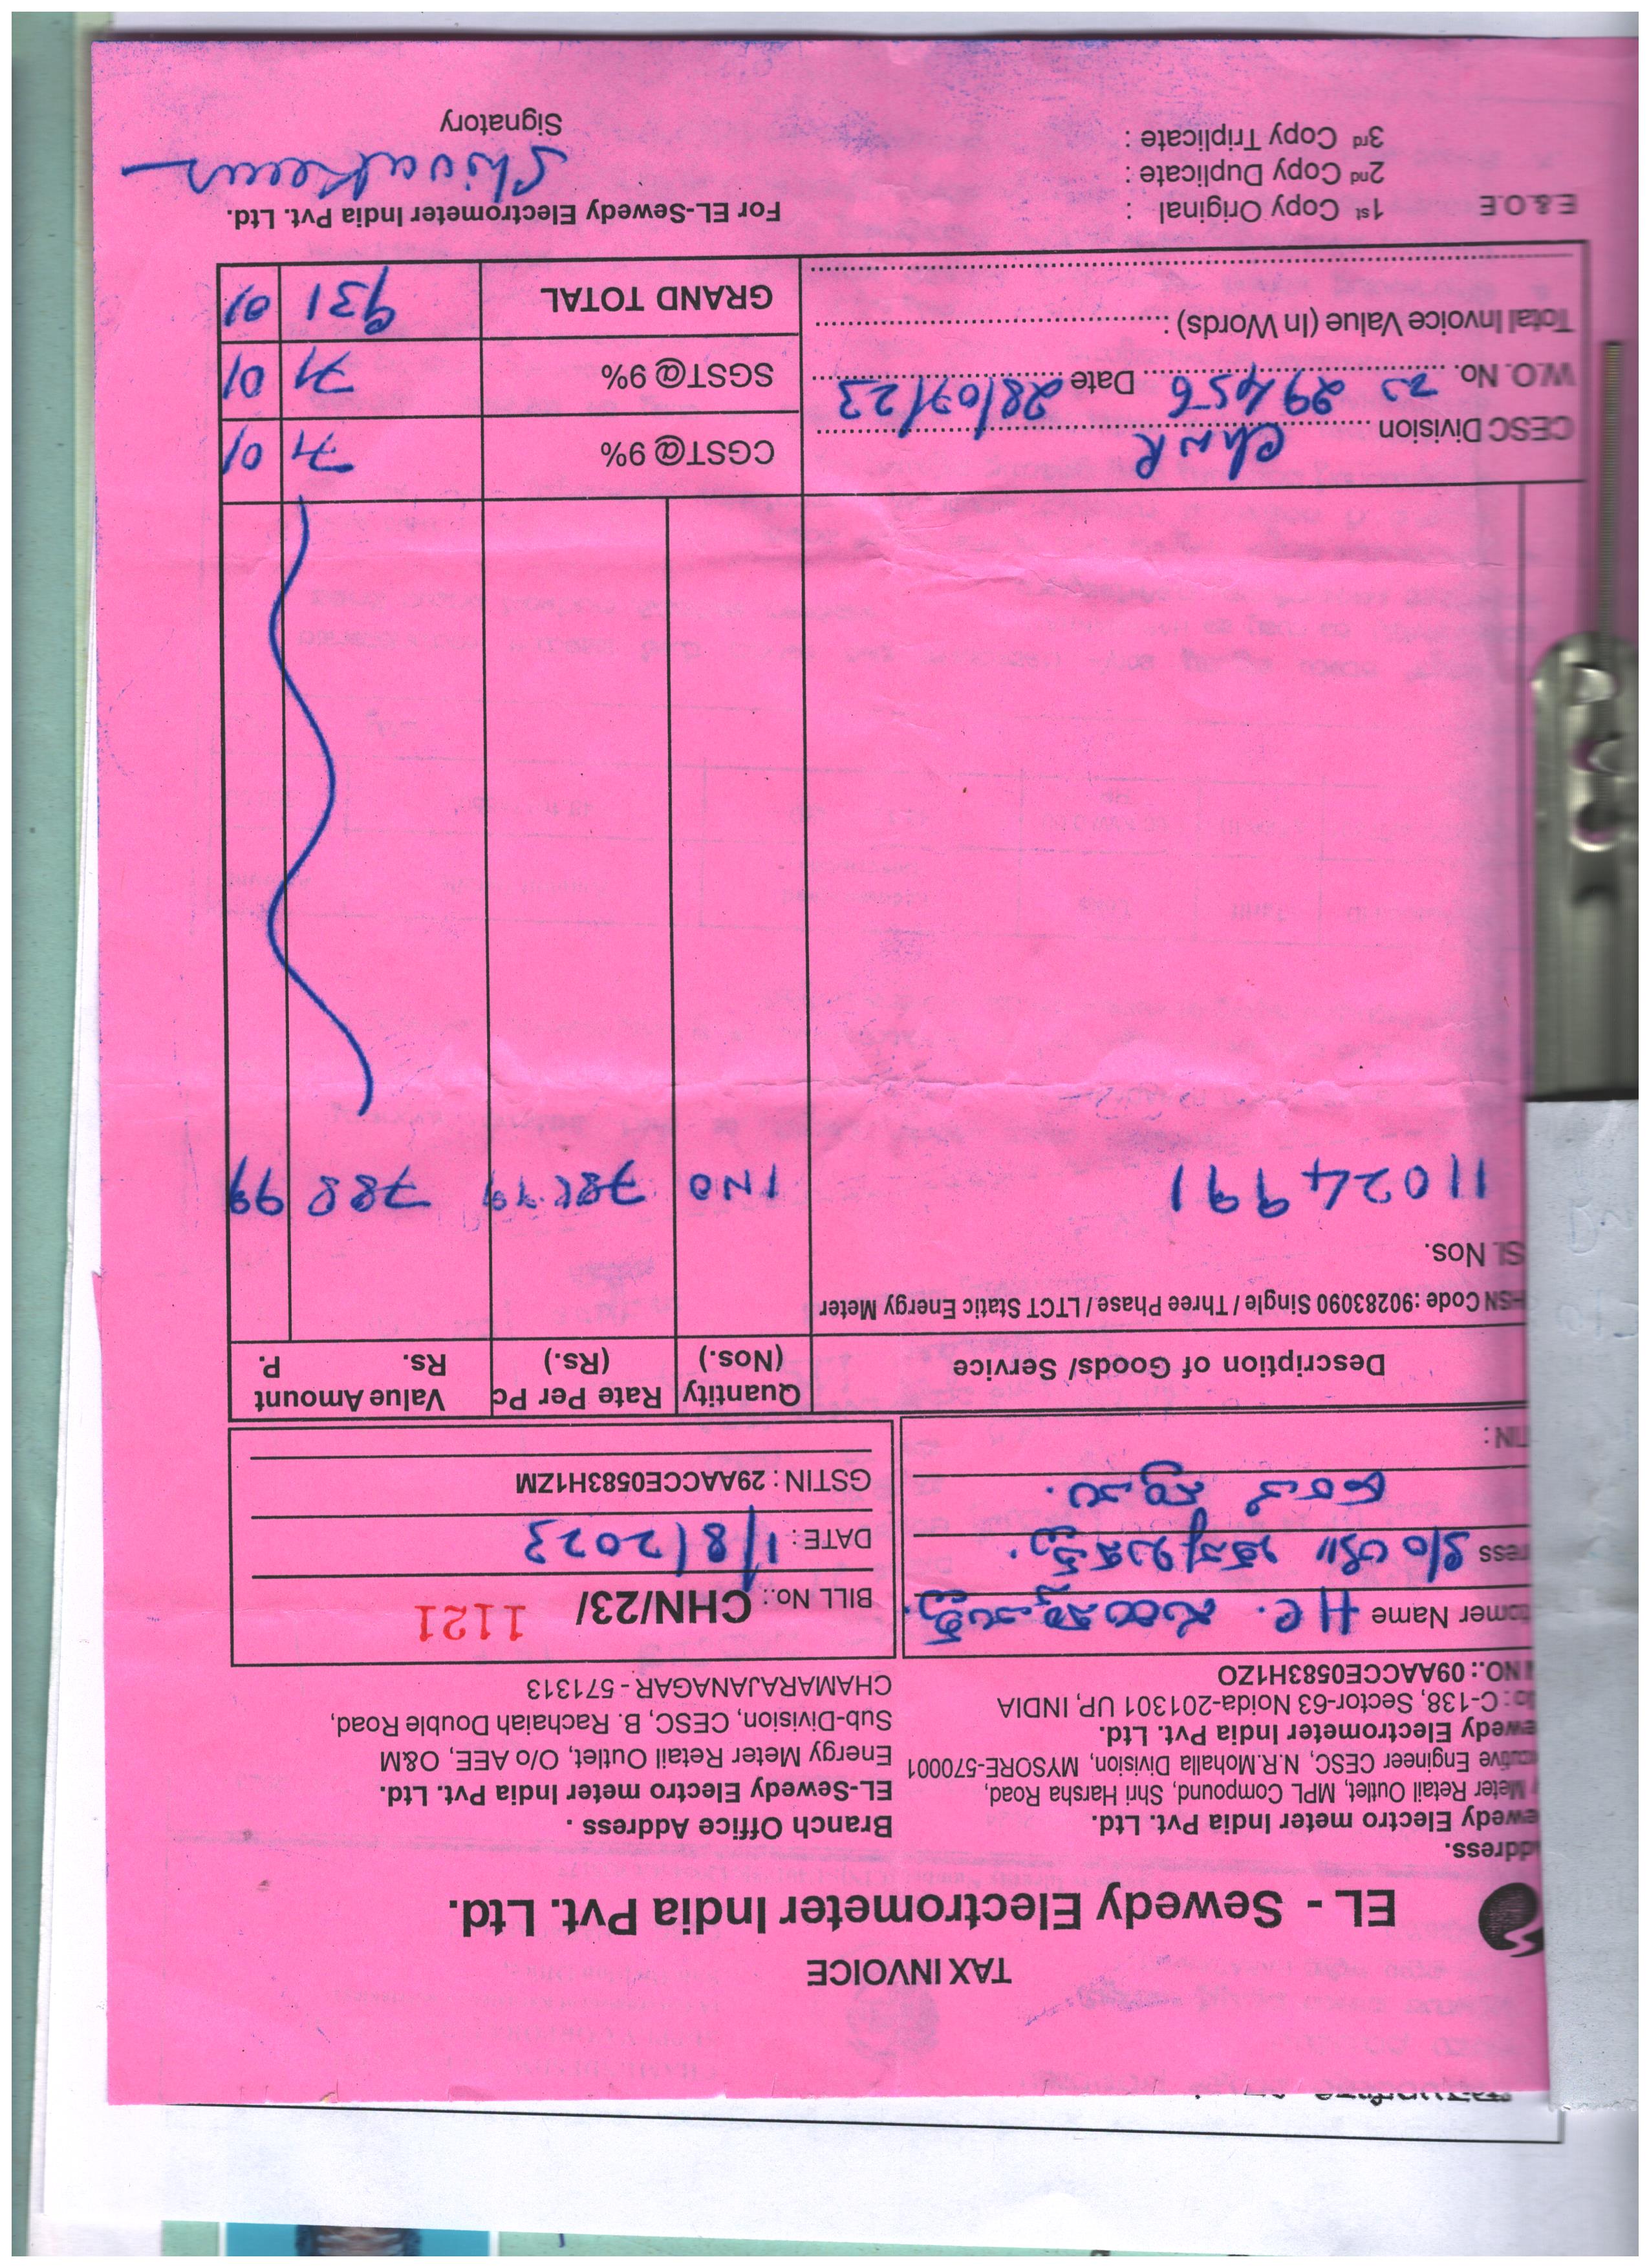 TAX INVOICE
EL - Sewedy Electrometer India Pvt. Ltd.
ddress.
ewedy Electro meter India Pvt. Ltd.
Meter Retail Outlet, MPL Compound, Shri Harsha Road,
cutive Engineer CESC, N.R.Mohalla Division, MYSORE-570001
ewedy Electrometer India Pvt. Ltd.
o: C-138, Sector-63 Noida-201301 UP, INDIA
NO.: 09AACCE0583H1ZO
Branch Office Address .
EL-Sewedy Electro meter India Pvt. Ltd.
Energy Meter Retail Outlet, O/o AEE, O&M
Sub-Division, CESC, B. Rachaiah Double Road,
CHAMARAJANAGAR - 571313
tomer Name H.C.
ress S/o
TIN :
BILL No.: CHN/23/ 1121
DATE : 1/8/2023
GSTIN : 29AACCE0583H1ZM
Description of Goods/ Service Quantity (Nos.) Rate Per Pc (Rs.) Value Amount Rs. P.
HSN Code :90283090 Single / Three Phase / LTCT Static Energy Meter
Sl. Nos.
11024991 1NO 788.99 788 99
CESC Division ChnR CGST@ 9% 71 01
W.O. No. 29456 Date 28/07/23 SGST@ 9% 71 01
Total Invoice Value (In Words) : GRAND TOTAL 931 01
E & O E 1st Copy Original : For EL-Sewedy Electrometer India Pvt. Ltd.
2nd Copy Duplicate :
3rd Copy Triplicate : Signatory